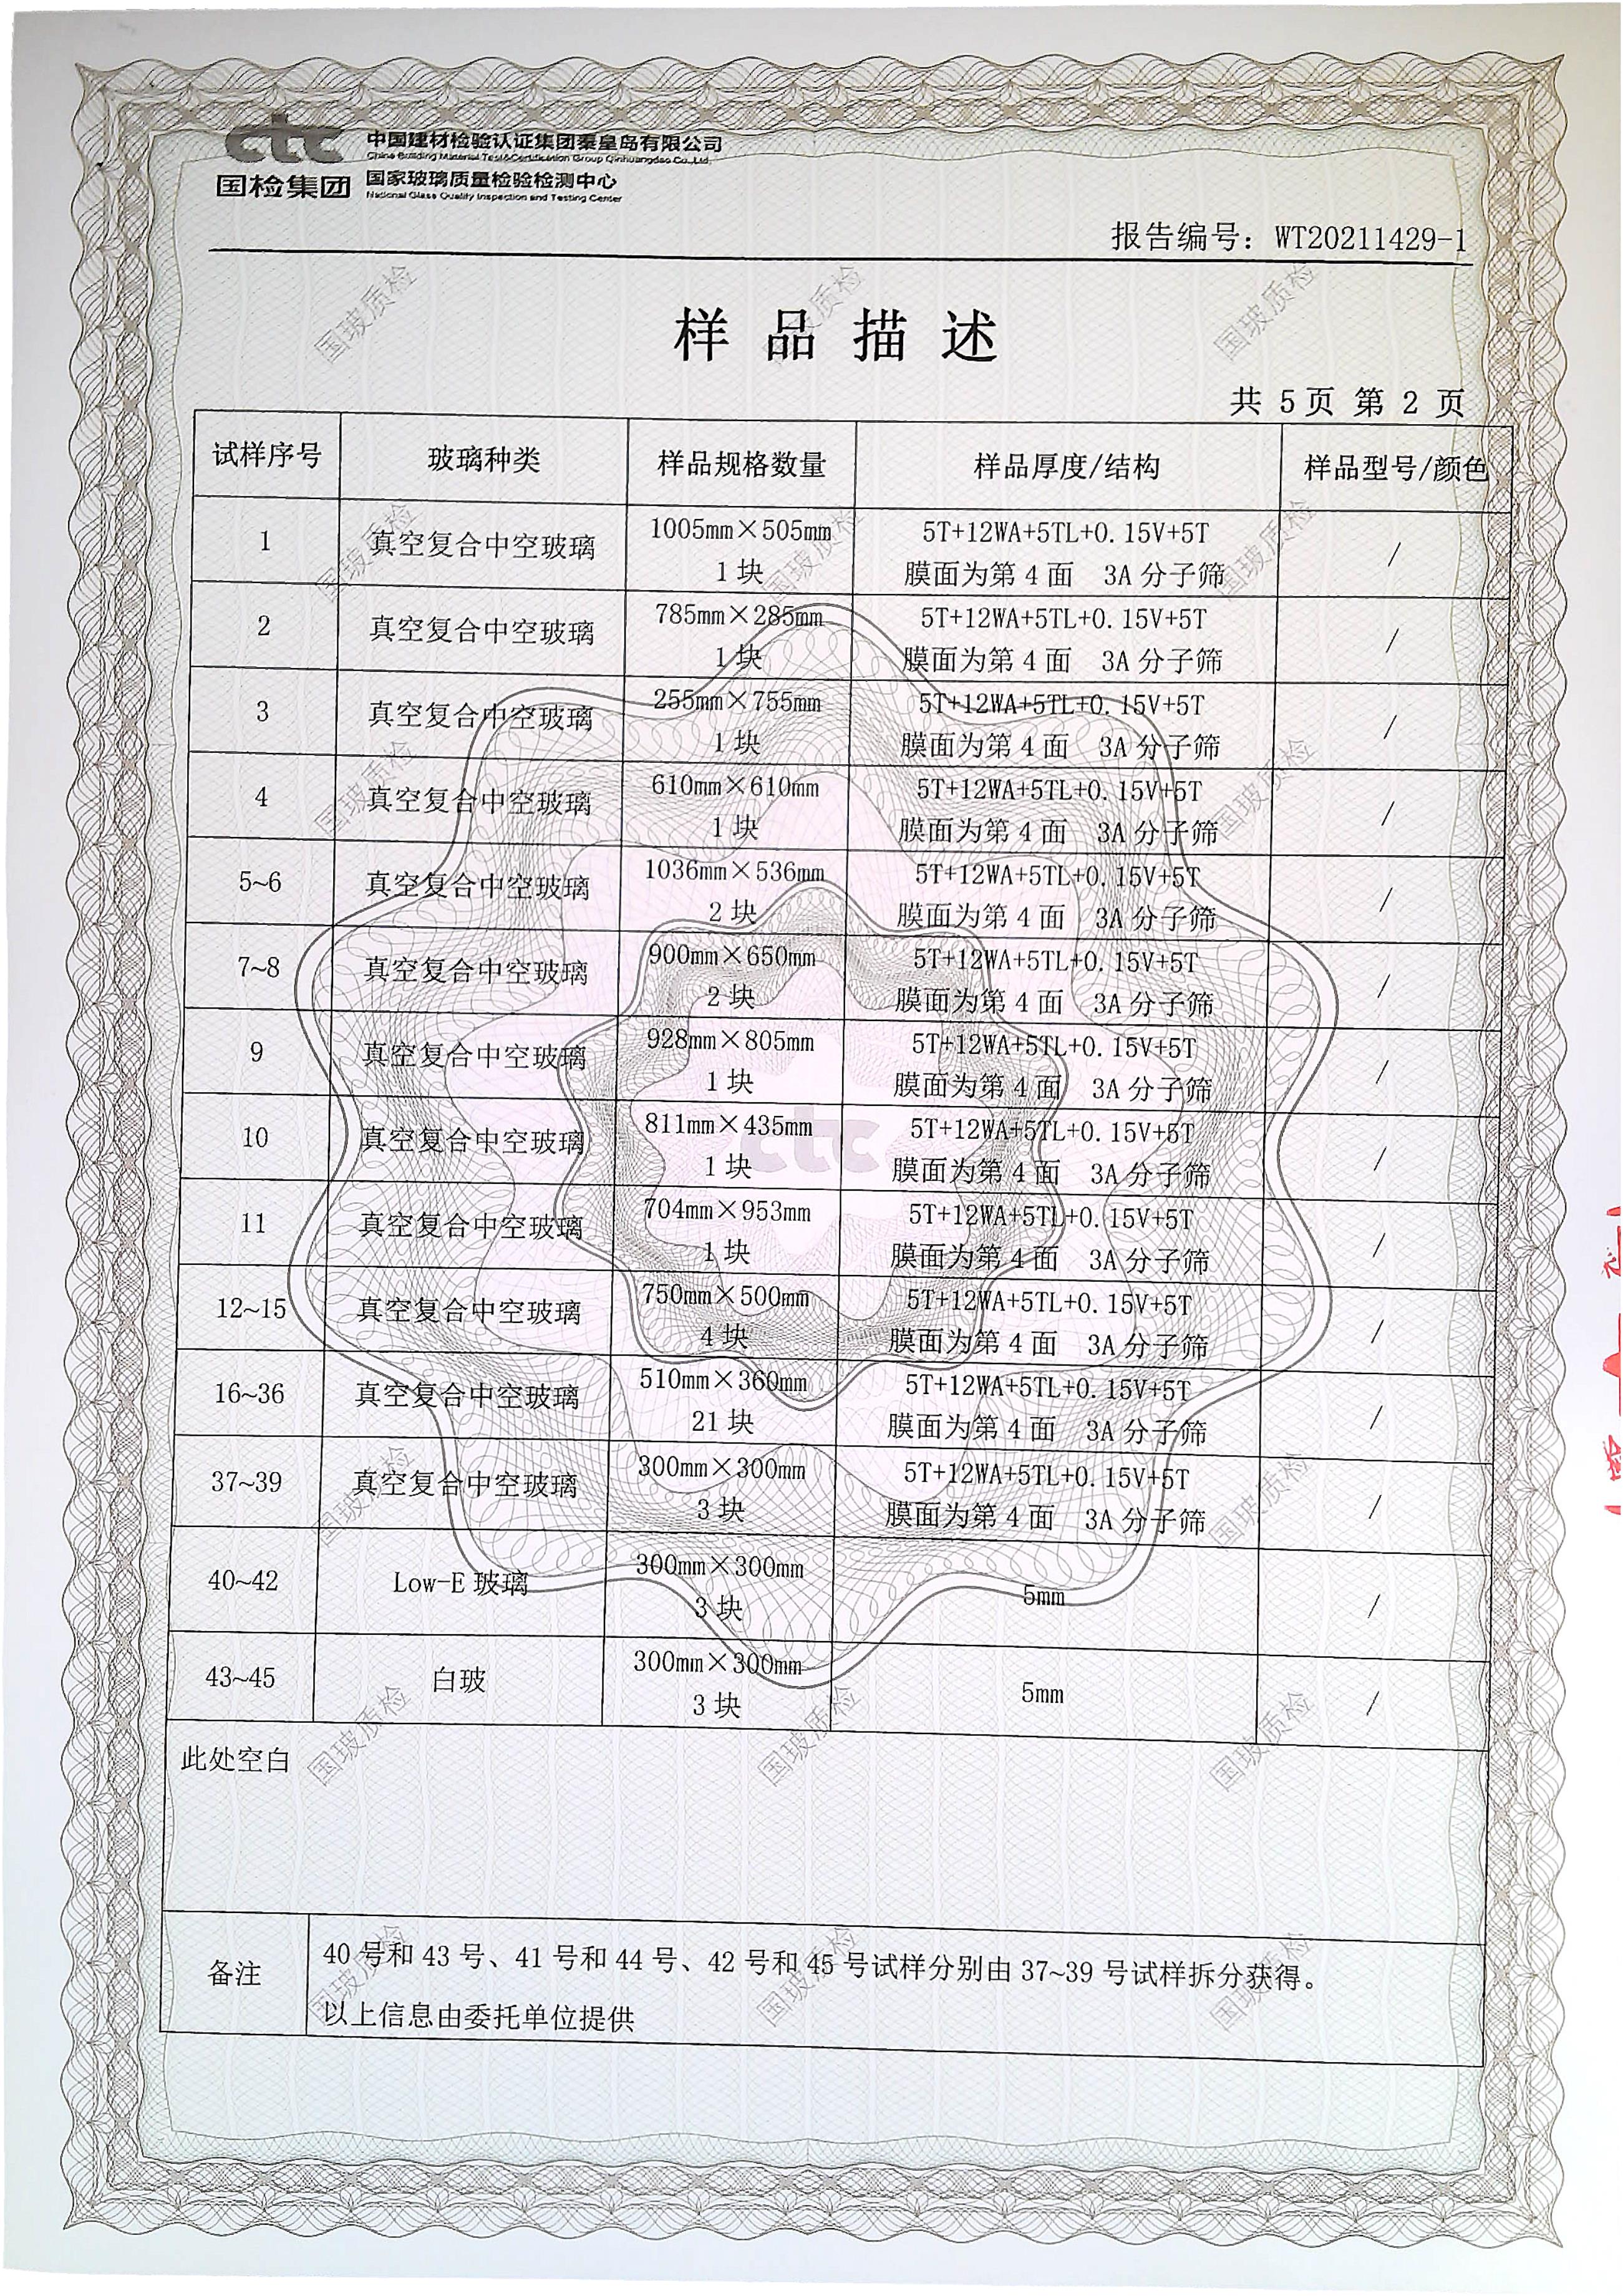 ctc 中国建材检验认证集团秦皇岛有限公司
China Building Material Test&Certification Group Qinhuangdao Co.,Ltd.
国检集团 国家玻璃质量检验检测中心
National Glass Quality Inspection and Testing Center
报告编号：WT20211429-1
样品描述
共 5页 第 2 页
试样序号 玻璃种类 样品规格数量 样品厚度/结构 样品型号/颜色
1 真空复合中空玻璃 1005mm×505mm 5T+12WA+5TL+0.15V+5T /
1块 膜面为第4面 3A分子筛
2 真空复合中空玻璃 785mm×285mm 5T+12WA+5TL+0.15V+5T /
1块 膜面为第4面 3A分子筛
3 真空复合中空玻璃 255mm×755mm 5T+12WA+5TL+0.15V+5T /
1块 膜面为第4面 3A分子筛
4 真空复合中空玻璃 610mm×610mm 5T+12WA+5TL+0.15V+5T /
1块 膜面为第4面 3A分子筛
5~6 真空复合中空玻璃 1036mm×536mm 5T+12WA+5TL+0.15V+5T /
2块 膜面为第4面 3A分子筛
7~8 真空复合中空玻璃 900mm×650mm 5T+12WA+5TL+0.15V+5T /
2块 膜面为第4面 3A分子筛
9 真空复合中空玻璃 928mm×805mm 5T+12WA+5TL+0.15V+5T /
1块 膜面为第4面 3A分子筛
10 真空复合中空玻璃 811mm×435mm 5T+12WA+5TL+0.15V+5T /
1块 膜面为第4面 3A分子筛
11 真空复合中空玻璃 704mm×953mm 5T+12WA+5TL+0.15V+5T /
1块 膜面为第4面 3A分子筛
12~15 真空复合中空玻璃 750mm×500mm 5T+12WA+5TL+0.15V+5T /
4块 膜面为第4面 3A分子筛
16~36 真空复合中空玻璃 510mm×360mm 5T+12WA+5TL+0.15V+5T /
21块 膜面为第4面 3A分子筛
37~39 真空复合中空玻璃 300mm×300mm 5T+12WA+5TL+0.15V+5T /
3块 膜面为第4面 3A分子筛
40~42 Low-E玻璃 300mm×300mm 5mm /
3块
43~45 白玻 300mm×300mm 5mm /
3块
此处空白
备注 40号和43号、41号和44号、42号和45号试样分别由37~39号试样拆分获得。
以上信息由委托单位提供
国玻质检
ctc